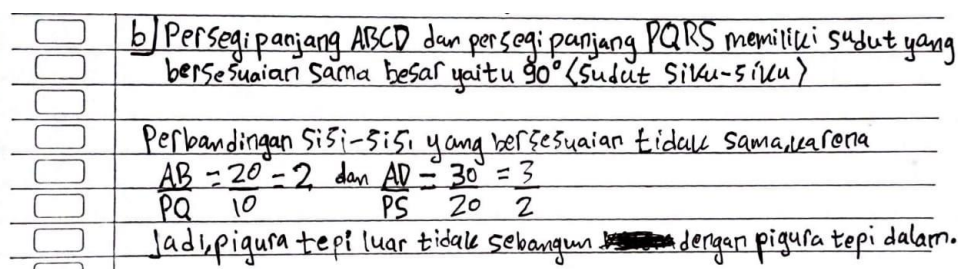 b) Persegi panjang ABCD dan persegi panjang PQRS memiliki sudut yang
bersesuaian sama besar yaitu 90° (sudut siku-siku)
Perbandingan sisi-sisi yang bersesuaian tidak sama, karena
AB/PQ = 20/10 = 2 dan AD/PS = 30/20 = 3/2
Jadi, pigura tepi luar tidak sebangun dengan pigura tepi dalam.